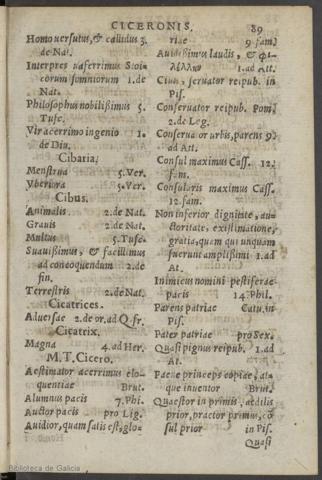 CICERONIS. 89
Homo versutus, & callidus 3.
de Nat.
Interpres vaferrimus Stoi-
corum somniorum 1. de
Nat.
Philosophus nobilißimus 5.
Tusc.
Vir acerrimo ingenio 1.
de Diu.
Cibaria.
Menstrua 5. Ver.
Vberiora 5. Ver.
Cibus.
Animalis 2. de Nat.
Grauis 2. de Nat.
Multus 5. Tusc.
Suauißimus, & facillimus
ad concoquendum 2. de
fin.
Terrestris 2. de Nat.
Cicatrices.
Aduersae 2. de or. ad Q. fr.
Cicatrix.
Magna 4. ad Her.
M. T. Cicero.
Aestimator acerrimus elo-
quentiae Brut.
Alumnus pacis 7. Phi.
Auctor pacis pro Lig.
Auidior, quam satis est, glo-
riae 9 fam.
Auidißimus laudis, & φι-
λέλλην 1. ad Att.
Ciuis, seruator reipub. in
Pis.
Conseruator reipub. Pom.
2. de Leg.
Conseruator vrbis, parens 9.
ad Att.
Consul maximus Cass. 12.
fam.
Consularis maximus Cass.
12. fam.
Non inferior dignitate, au-
ctoritate, existimatione,
gratia, quam qui unquam
fuerunt amplißimi 1. ad
At.
Inimicus nomini pestiferae
pacis 14. Phil.
Parens patriae Catu. in
Pis.
Pater patriae pro Sex.
Quasi pignus reipub. 1. ad
At.
Paene princeps copiae, at-
que inuentor Brut.
Quaestor in primis, aedilis
prior, praetor primus, cō
sul prior in Pis.
Quasi
Biblioteca de Galicia